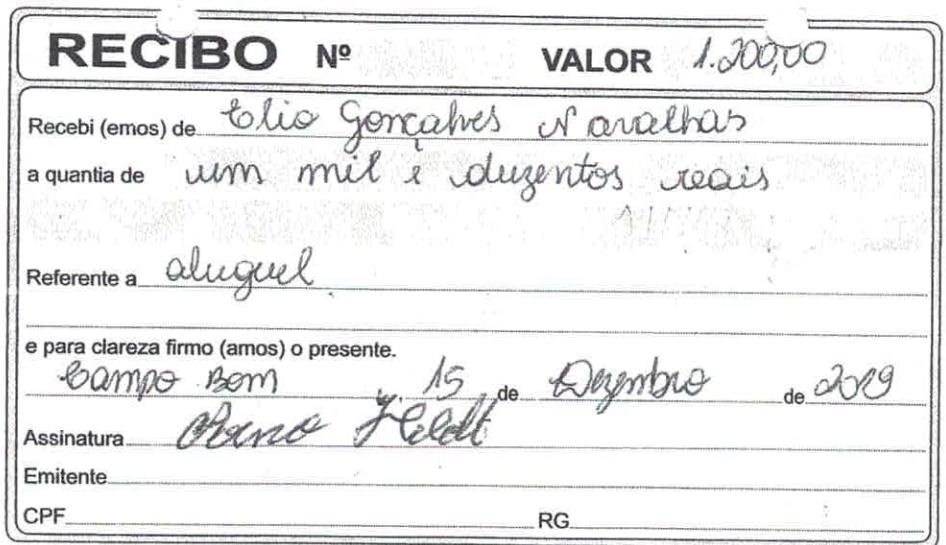 RECIBO Nº VALOR 1.200,00
Recebi (emos) de Elio Gonçalves Navalhas
a quantia de um mil e duzentos reais
Referente a aluguel
e para clareza firmo (amos) o presente.
Campo Bom, 15 de Dezembro de 2019
Assinatura
Emitente
CPF RG